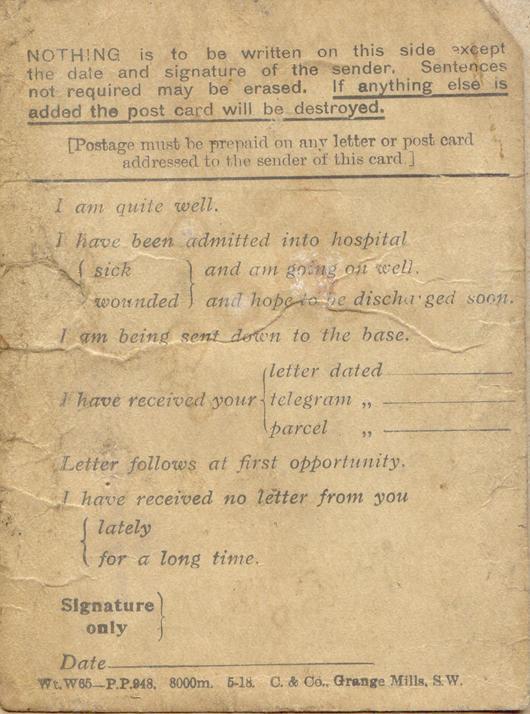 NOTHING is to be written on this side except
the date and signature of the sender. Sentences
not required may be erased. If anything else is
added the post card will be destroyed.
[Postage must be prepaid on any letter or post card
addressed to the sender of this card.]
I am quite well.
I have been admitted into hospital
{ sick } and am going on well.
{ wounded } and hope to be discharged soon.
I am being sent down to the base.
I have received your { letter dated
telegram „
parcel „
Letter follows at first opportunity.
I have received no letter from you
{ lately
for a long time.
Signature }
only
Date
Wt. W65—P.P.948. 8000m. 5-18. C. & Co., Grange Mills, S.W.